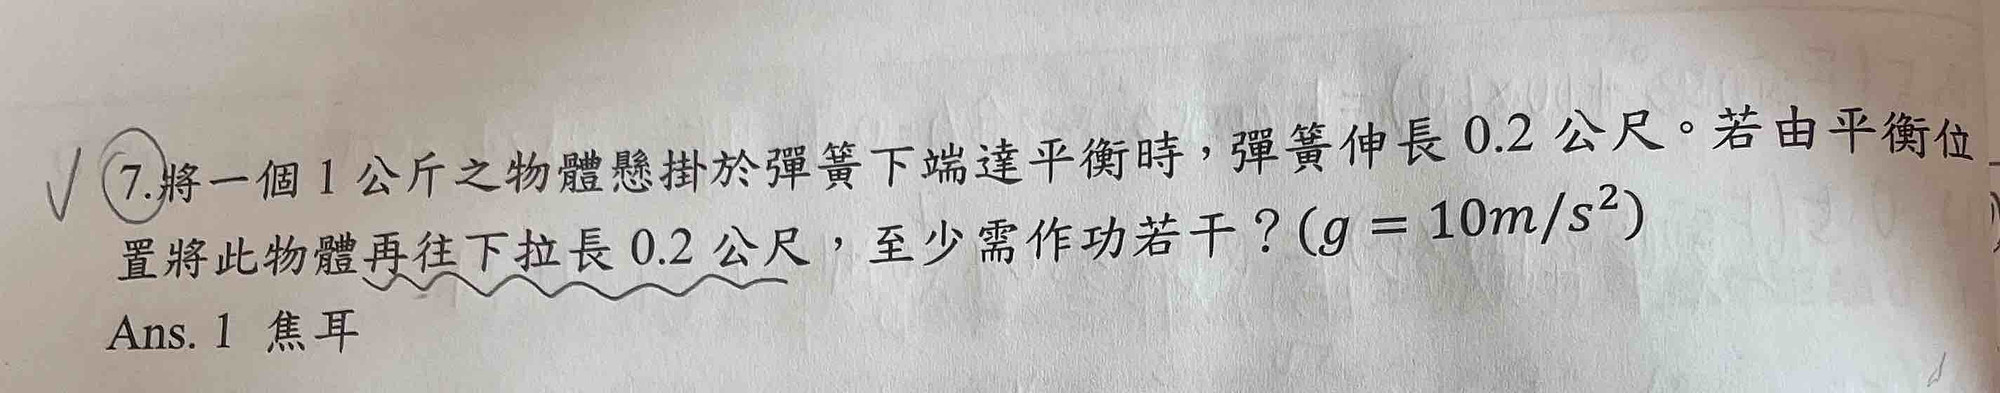 7.將一個 1 公斤之物體懸掛於彈簧下端達平衡時,彈簧伸長 0.2 公尺。若由平衡位
置將此物體再往下拉長 0.2 公尺,至少需作功若干?(g = 10m/s²)
Ans. 1 焦耳